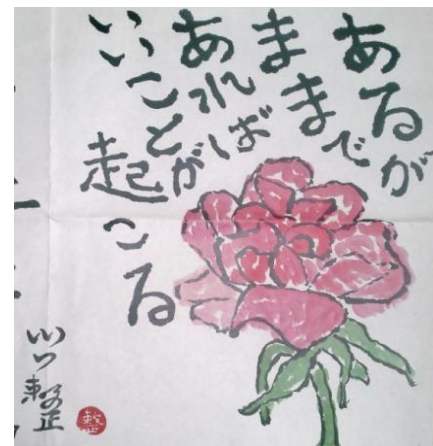 あるが
ままで
あれば
いいことが
起こる
整
整